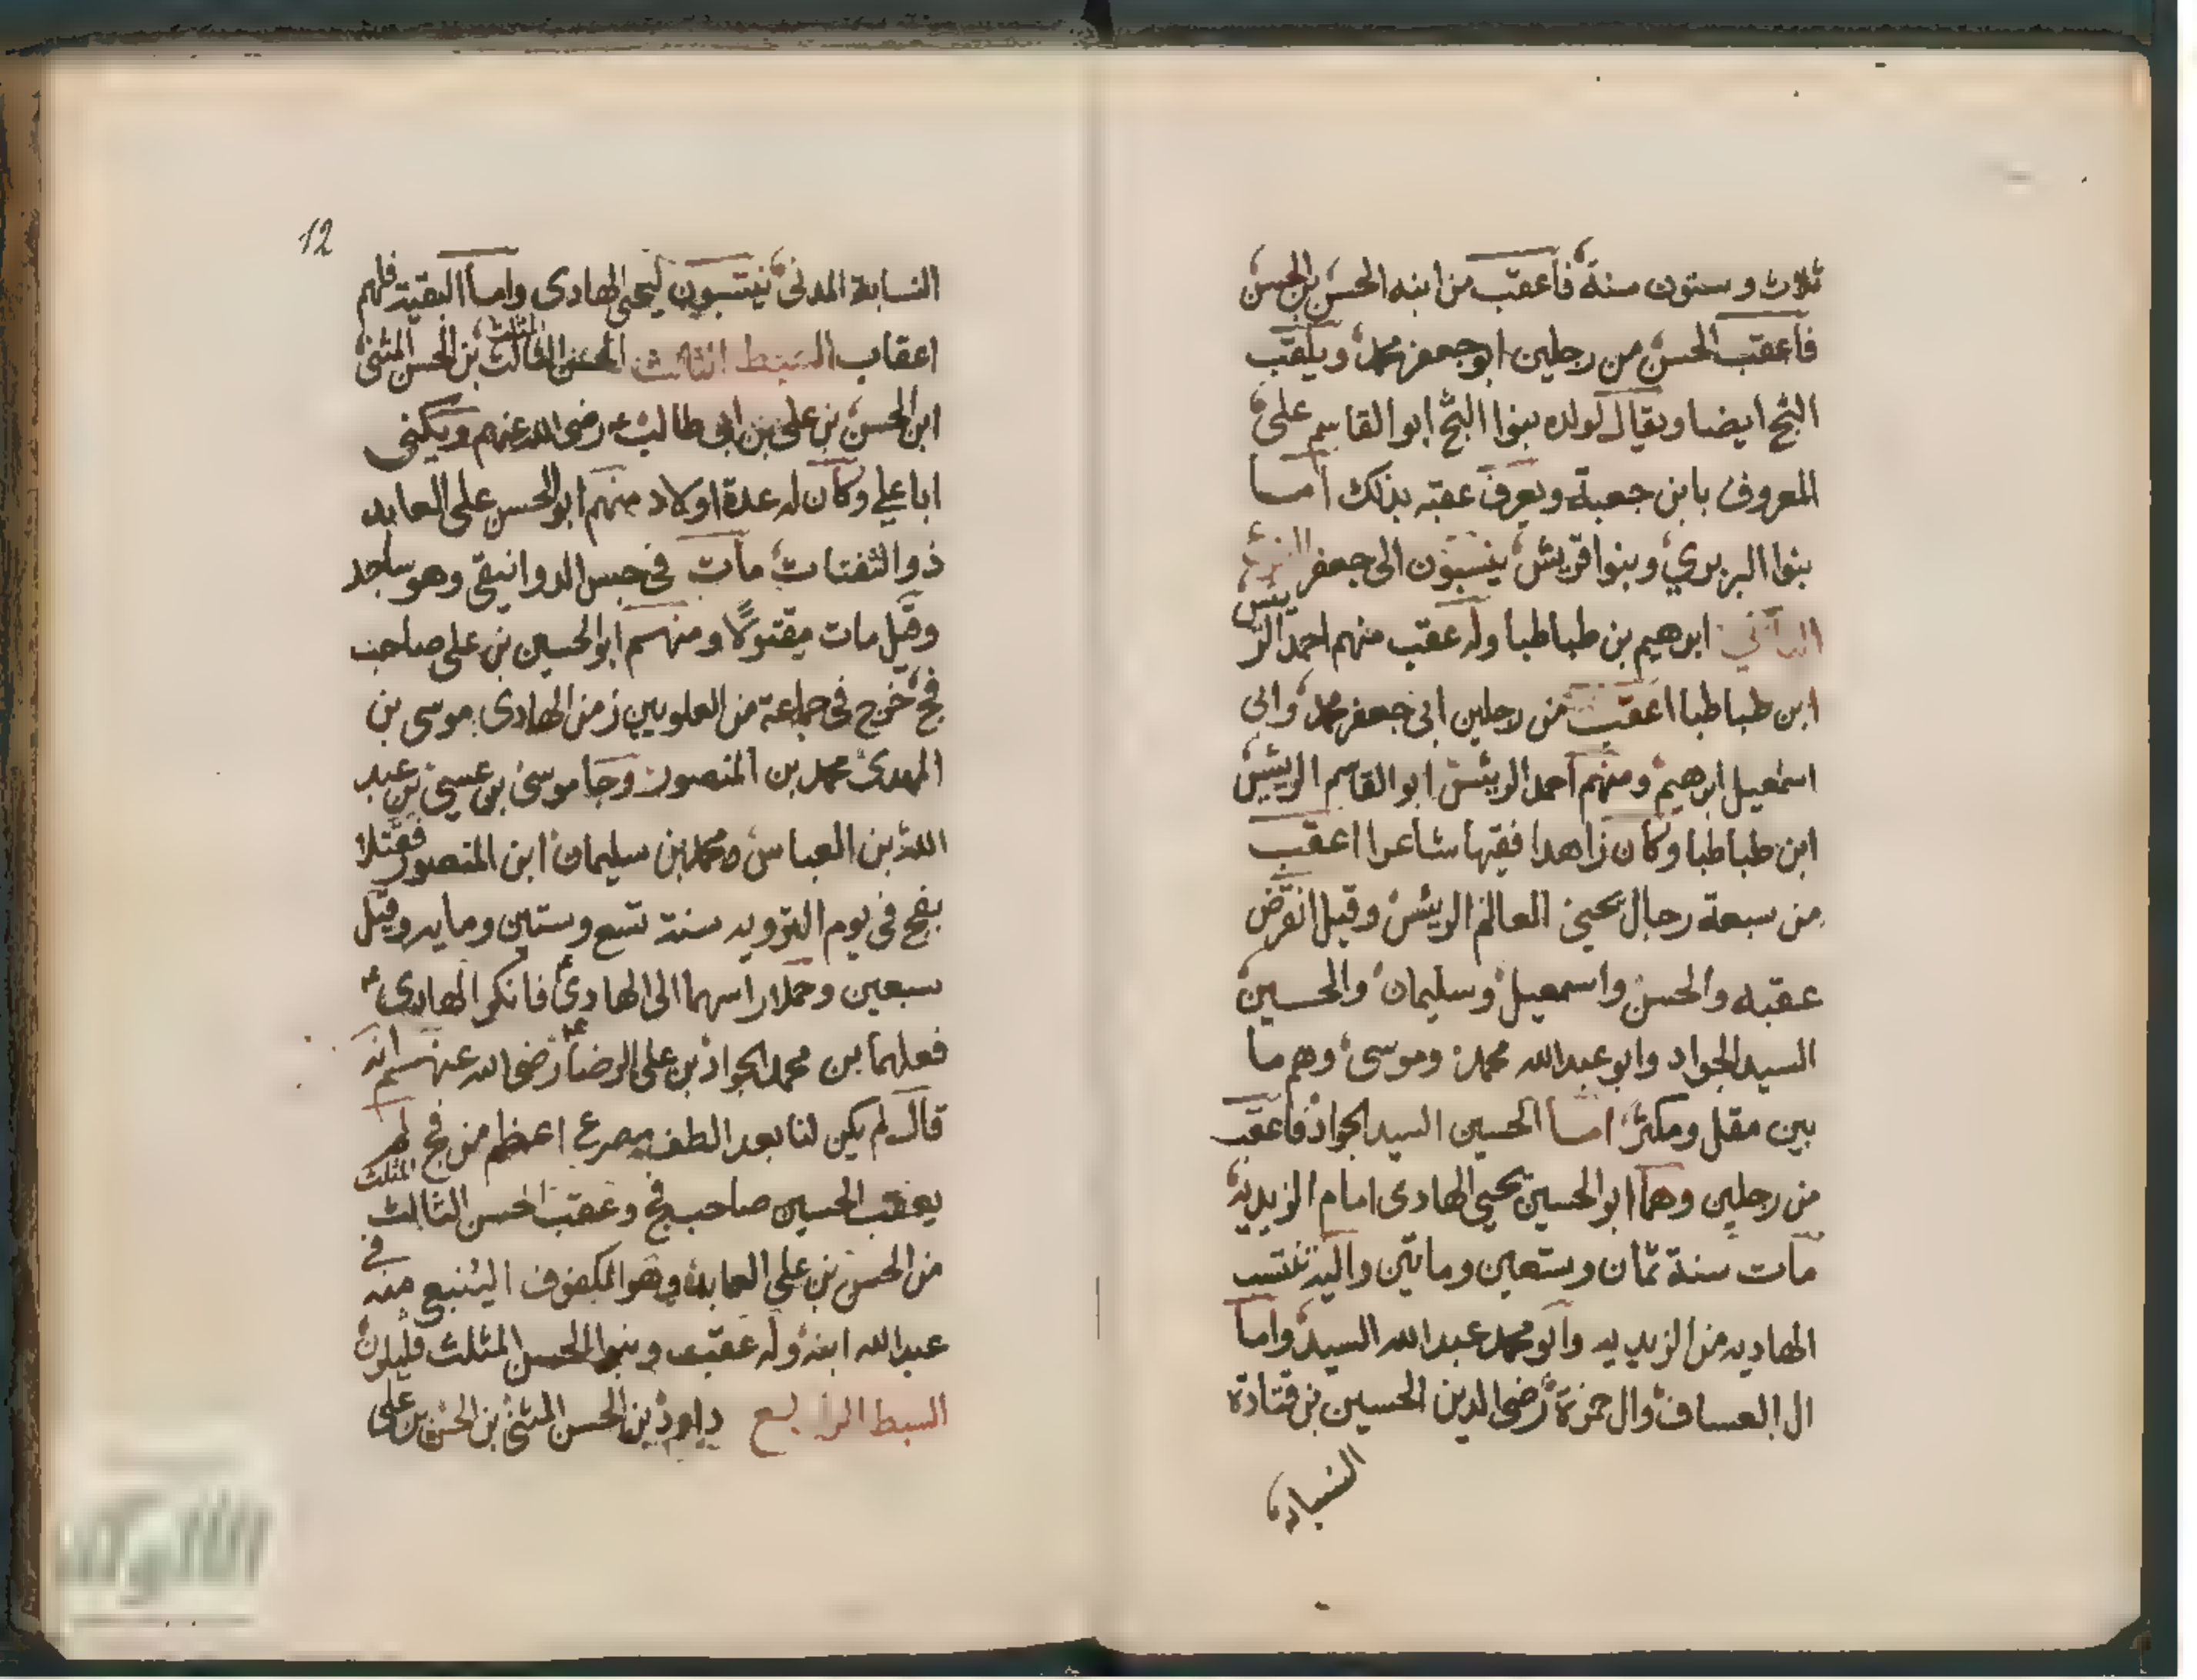 ثلاث وستون سنة فأعقب من ابنه الحسن بن الحسن
فأعقب الحسن من رجلين ابو جعفر محمد ويلقب
التج ايضا ويقال لولده بنوا التج ابو القاسم على
المعروف بابن جعبة ويعرف عقبه بذلك أما
بنوا البربري وبنوا قريش ينسبون الى جعفر
ابرهيم بن طباطبا وله عقب منهم احمد الرئيس
ابن طباطبا اعقب من رجلين ابى جعفر محمد وابى
اسمعيل ابرهيم ومنهم أحمد الرئيس ابو القاسم الرئيس
ابن طباطبا وكان زاهدا فقيها شاعرا اعقب
من سبعة رجال يحيى العالم الرئيس وقيل انقرض
عقبه والحسن واسمعيل وسليمان والحسين
السيد الجواد وابو عبدالله محمد وموسى وهم ما
بين مقل ومكثر اما الحسين السيد الجواد فأعقب
من رجلين وهما ابو الحسين يحيى الهادى امام الزيديه
مات سنة ثمان وستعين وماتين واليه تنتسب
الهاديه من الزيديه وابو محمد عبدالله السيد وأما
ال العساف وال حمزة رضى الدين الحسين بن قتادة
النسابه
12
النسابة المدنى ينتسبون ليحيى الهادى واما البقية فلهم
اعقاب السبط الثالث الحسن الثالث المثلث بن الحسن المثنى
ابن الحسن بن على بن ابى طالب رضى الله عنهم ويكنى
ابا على وكان له عدة اولاد منهم ابو الحسن على العابد
ذو الثفنات مات فى حبس الدوانيقى وهو ساجد
وقيل مات مقتولا ومنهم ابو الحسين بن على صاحب
فخ خرج فى جماعة من العلويين زمن الهادى موسى بن
المهدى محمد بن المنصور وجا موسى بن عسيى بن عبد
الله بن العباس ومحمد بن سليمان ابن المنصور فقتلا
بفخ فى يوم الترويه سنة تسع وستين ومايه وقيل
سبعين وحملا راسهما الى الهادى فانكر الهادى
فعلهما بن محمد الجواد بن على الرضا رضى الله عنهم انه
قال لم يكن لنا بعد الطف مصرع اعظم من فخ لم
يعقب الحسين صاحب فخ وعقب الحسن الثالث المثلث
من الحسن بن على العابد وهو المكفوف الينبع منه فى
عبدالله ابنه وله عقب وبنوا الحسن المثلث قليلون
السبط الرابع داود بن الحسن المثنى بن الحسن بن على